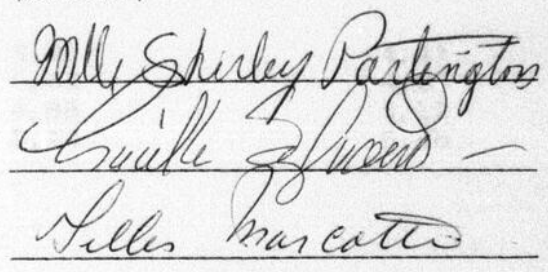 Mlle Shirley Partington
Lucille
Gilles Marcotte